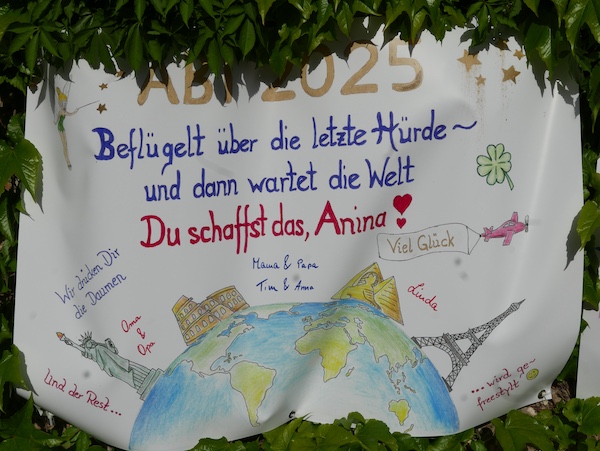 ABI 2025
Beflügelt über die letzte Hürde ~
und dann wartet die Welt
Du schaffst das, Anina!
Viel Glück
Mama & Papa
Tim & Anna
Wir drücken Dir
die Daumen
Oma
&
Opa
Linda
Und der Rest...
...wird ge~
freestylt